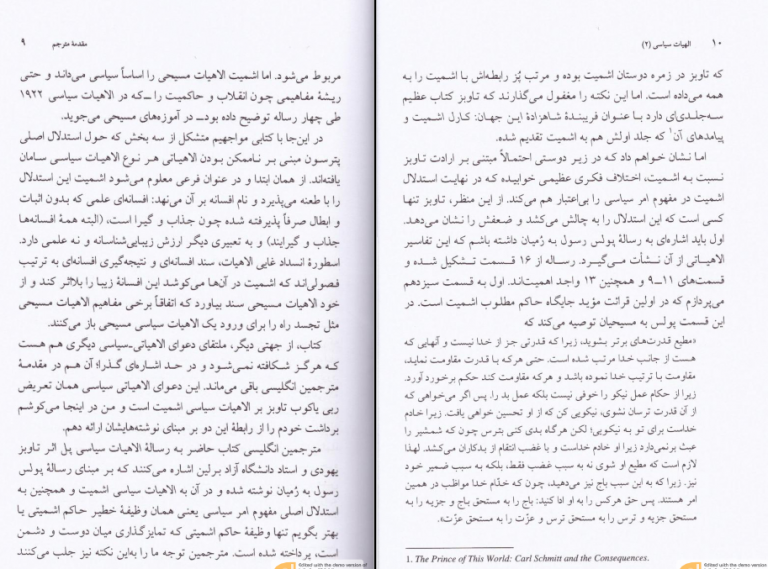 مقدمهٔ مترجم ۹
مربوط می‌شود. اما اشمیت الاهیات مسیحی را اساساً سیاسی می‌داند و حتی
ریشهٔ مفاهیمی چون انقلاب و حاکمیت را ــ‌که در الاهیات سیاسی ۱۹۲۲
طی چهار رساله توضیح داده بودــ در آموزه‌های مسیحی می‌جوید.
در این‌جا با کتابی مواجهیم متشکل از سه بخش که حول استدلال اصلی
پترسون مبنی بر ناممکن بودن الاهیاتی هر نوع الاهیات سیاسی سامان
یافته‌اند. از همان ابتدا و در عنوان فرعی معلوم می‌شود اشمیت این استدلال
را با طعنه می‌پذیرد و نام افسانه بر آن می‌نهد: افسانه‌ای علمی که بدون اثبات
و ابطال صرفاً پذیرفته شده چون جذاب و گیرا است، (البته همهٔ افسانه‌ها
جذاب و گیرایند) و به تعبیری دیگر ارزش زیبایی‌شناسانه و نه علمی دارد.
اسطورهٔ انسداد غایی الاهیات، سند افسانه‌ای و نتیجه‌گیری افسانه‌ای به ترتیب
فصولی‌اند که اشمیت در آن‌ها می‌کوشد این افسانهٔ زیبا را بلااثر کند و از
خود الاهیات مسیحی سند بیاورد که اتفاقاً برخی مفاهیم الاهیات مسیحی
مثل تجسد راه را برای ورود یک الاهیات سیاسی مسیحی باز می‌کنند.
کتاب، از جهتی دیگر، ملتقای دعوای الاهیاتی‌ـ‌سیاسی دیگری هم هست
که هرگز شکافته نمی‌شود و در حد اشاره‌ای گذرا؛ آن هم در مقدمهٔ
مترجمین انگلیسی باقی می‌ماند. این دعوای الاهیاتی سیاسی همان تعریض
ربی یاکوب تاوبز بر الاهیات سیاسی اشمیت است و من در اینجا می‌کوشم
برداشت خودم را از رابطهٔ این دو بر مبنای نوشته‌هایشان ارائه دهم.
مترجمین انگلیسی کتاب حاضر به رسالهٔ الاهیات سیاسی پل اثر تاوبز
یهودی و استاد دانشگاه آزاد برلین اشاره می‌کنند که بر مبنای رسالهٔ پولس
رسول به رُمیان نوشته شده و در آن به الاهیات سیاسی اشمیت و همچنین به
استدلال اصلی مفهوم امر سیاسی یعنی همان وظیفهٔ خطیر حاکم اشمیتی یا
بهتر بگویم تنها وظیفهٔ حاکم اشمیتی که تمایزگذاری میان دوست و دشمن
است، پرداخته شده است. مترجمین توجه ما را به‌این نکته نیز جلب می‌کنند
۱۰ الهیات سیاسی (۲)
که تاوبز در زمره دوستان اشمیت بوده و مرتب پُز رابطه‌اش با اشمیت را به
همه می‌داده است. اما این نکته را مغفول می‌گذارند که تاوبز کتاب عظیم
سه‌جلدی‌ای دارد با عنوان فریبندهٔ شاهزادهٔ این جهان: کارل اشمیت و
پیامدهای آن۱ که جلد اولش هم به اشمیت تقدیم شده.
اما نشان خواهم داد که در زیر دوستی احتمالاً مبتنی بر ارادت تاوبز
نسبت به اشمیت، اختلاف فکری عظیمی خوابیده که در نهایت استدلال
اشمیت در مفهوم امر سیاسی را بی‌اعتبار هم می‌کند. از این منظر، تاوبز تنها
کسی است که این استدلال را به چالش می‌کشد و ضعفش را نشان می‌دهد.
اول باید اشاره‌ای به رسالهٔ پولس رسول به رُمیان داشته باشم که این تفاسیر
الاهیاتی از آن نشأت می‌گیرد. رساله از ۱۶ قسمت تشکیل شده و
قسمت‌های ۱۱ــ۹ و همچنین ۱۳ واجد اهمیت‌اند. اول به قسمت سیزدهم
می‌پردازم که در اولین قرائت مؤید جایگاه حاکم مطلوب اشمیت است. در
این قسمت پولس به مسیحیان توصیه می‌کند که
«مطیع قدرت‌های برتر بشوید، زیرا که قدرتی جز از خدا نیست و آنهایی که
هست از جانب خدا مرتب شده است. حتی هرکه با قدرت مقاومت نماید،
مقاومت با ترتیب خدا نموده باشد و هرکه مقاومت کند حکم برخورد آورد.
زیرا از حکام عمل نیکو را خوفی نیست بلکه عمل بد را. پس اگر می‌خواهی که
از آن قدرت ترسان نشوی، نیکویی کن که از او تحسین خواهی یافت. زیرا خادم
خداست برای تو به نیکویی؛ لکن هرگاه بدی کنی بترس چون که شمشیر را
عبث برنمی‌دارد زیرا او خادم خداست و با غضب انتقام از بدکاران می‌کشد. لهذا
لازم است که مطیع او شوی نه به سبب غضب فقط، بلکه به سبب ضمیر خود
نیز. زیرا که به این سبب باج نیز می‌دهید، چون که خدّام خدا مواظب در همین
امر هستند. پس حق هرکس را به او ادا کنید: باج را به مستحق باج و جزیه را به
مستحق جزیه و ترس را به مستحق ترس و عزّت را به مستحق عزّت».
1. The Prince of This World: Carl Schmitt and the Consequences.
Edited with the demo version of
Edited with the demo version of